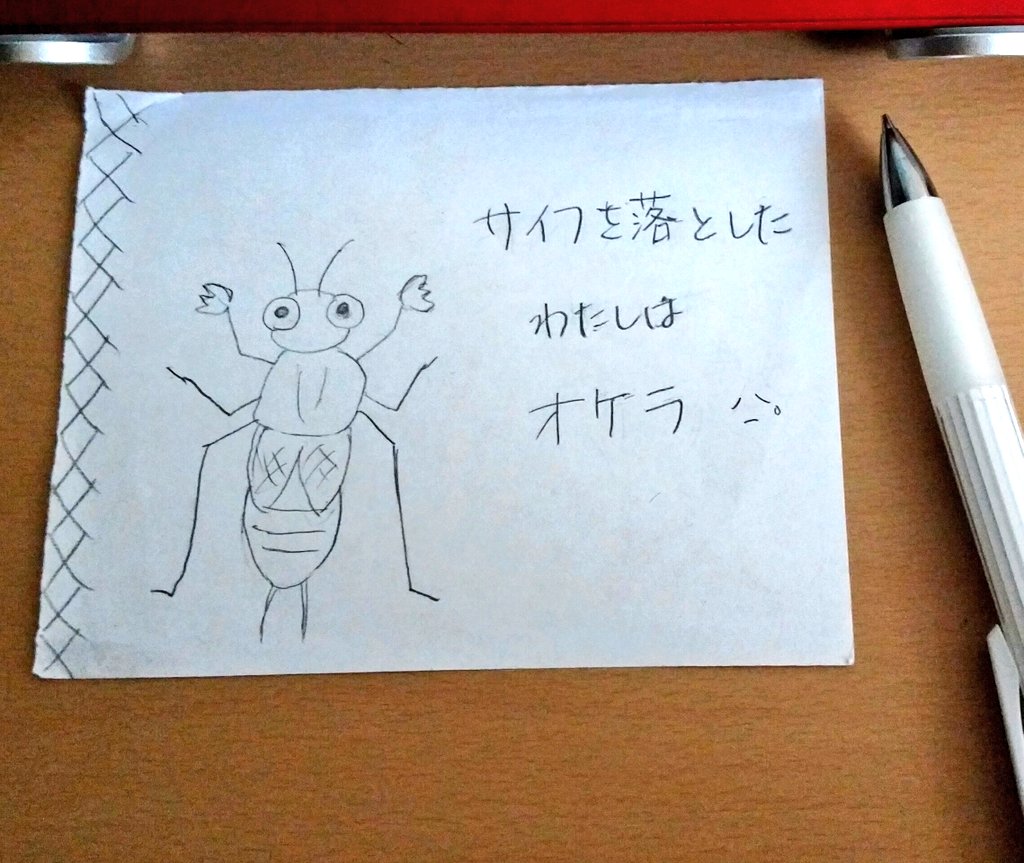 サイフを落とした
わたしは
オケラ